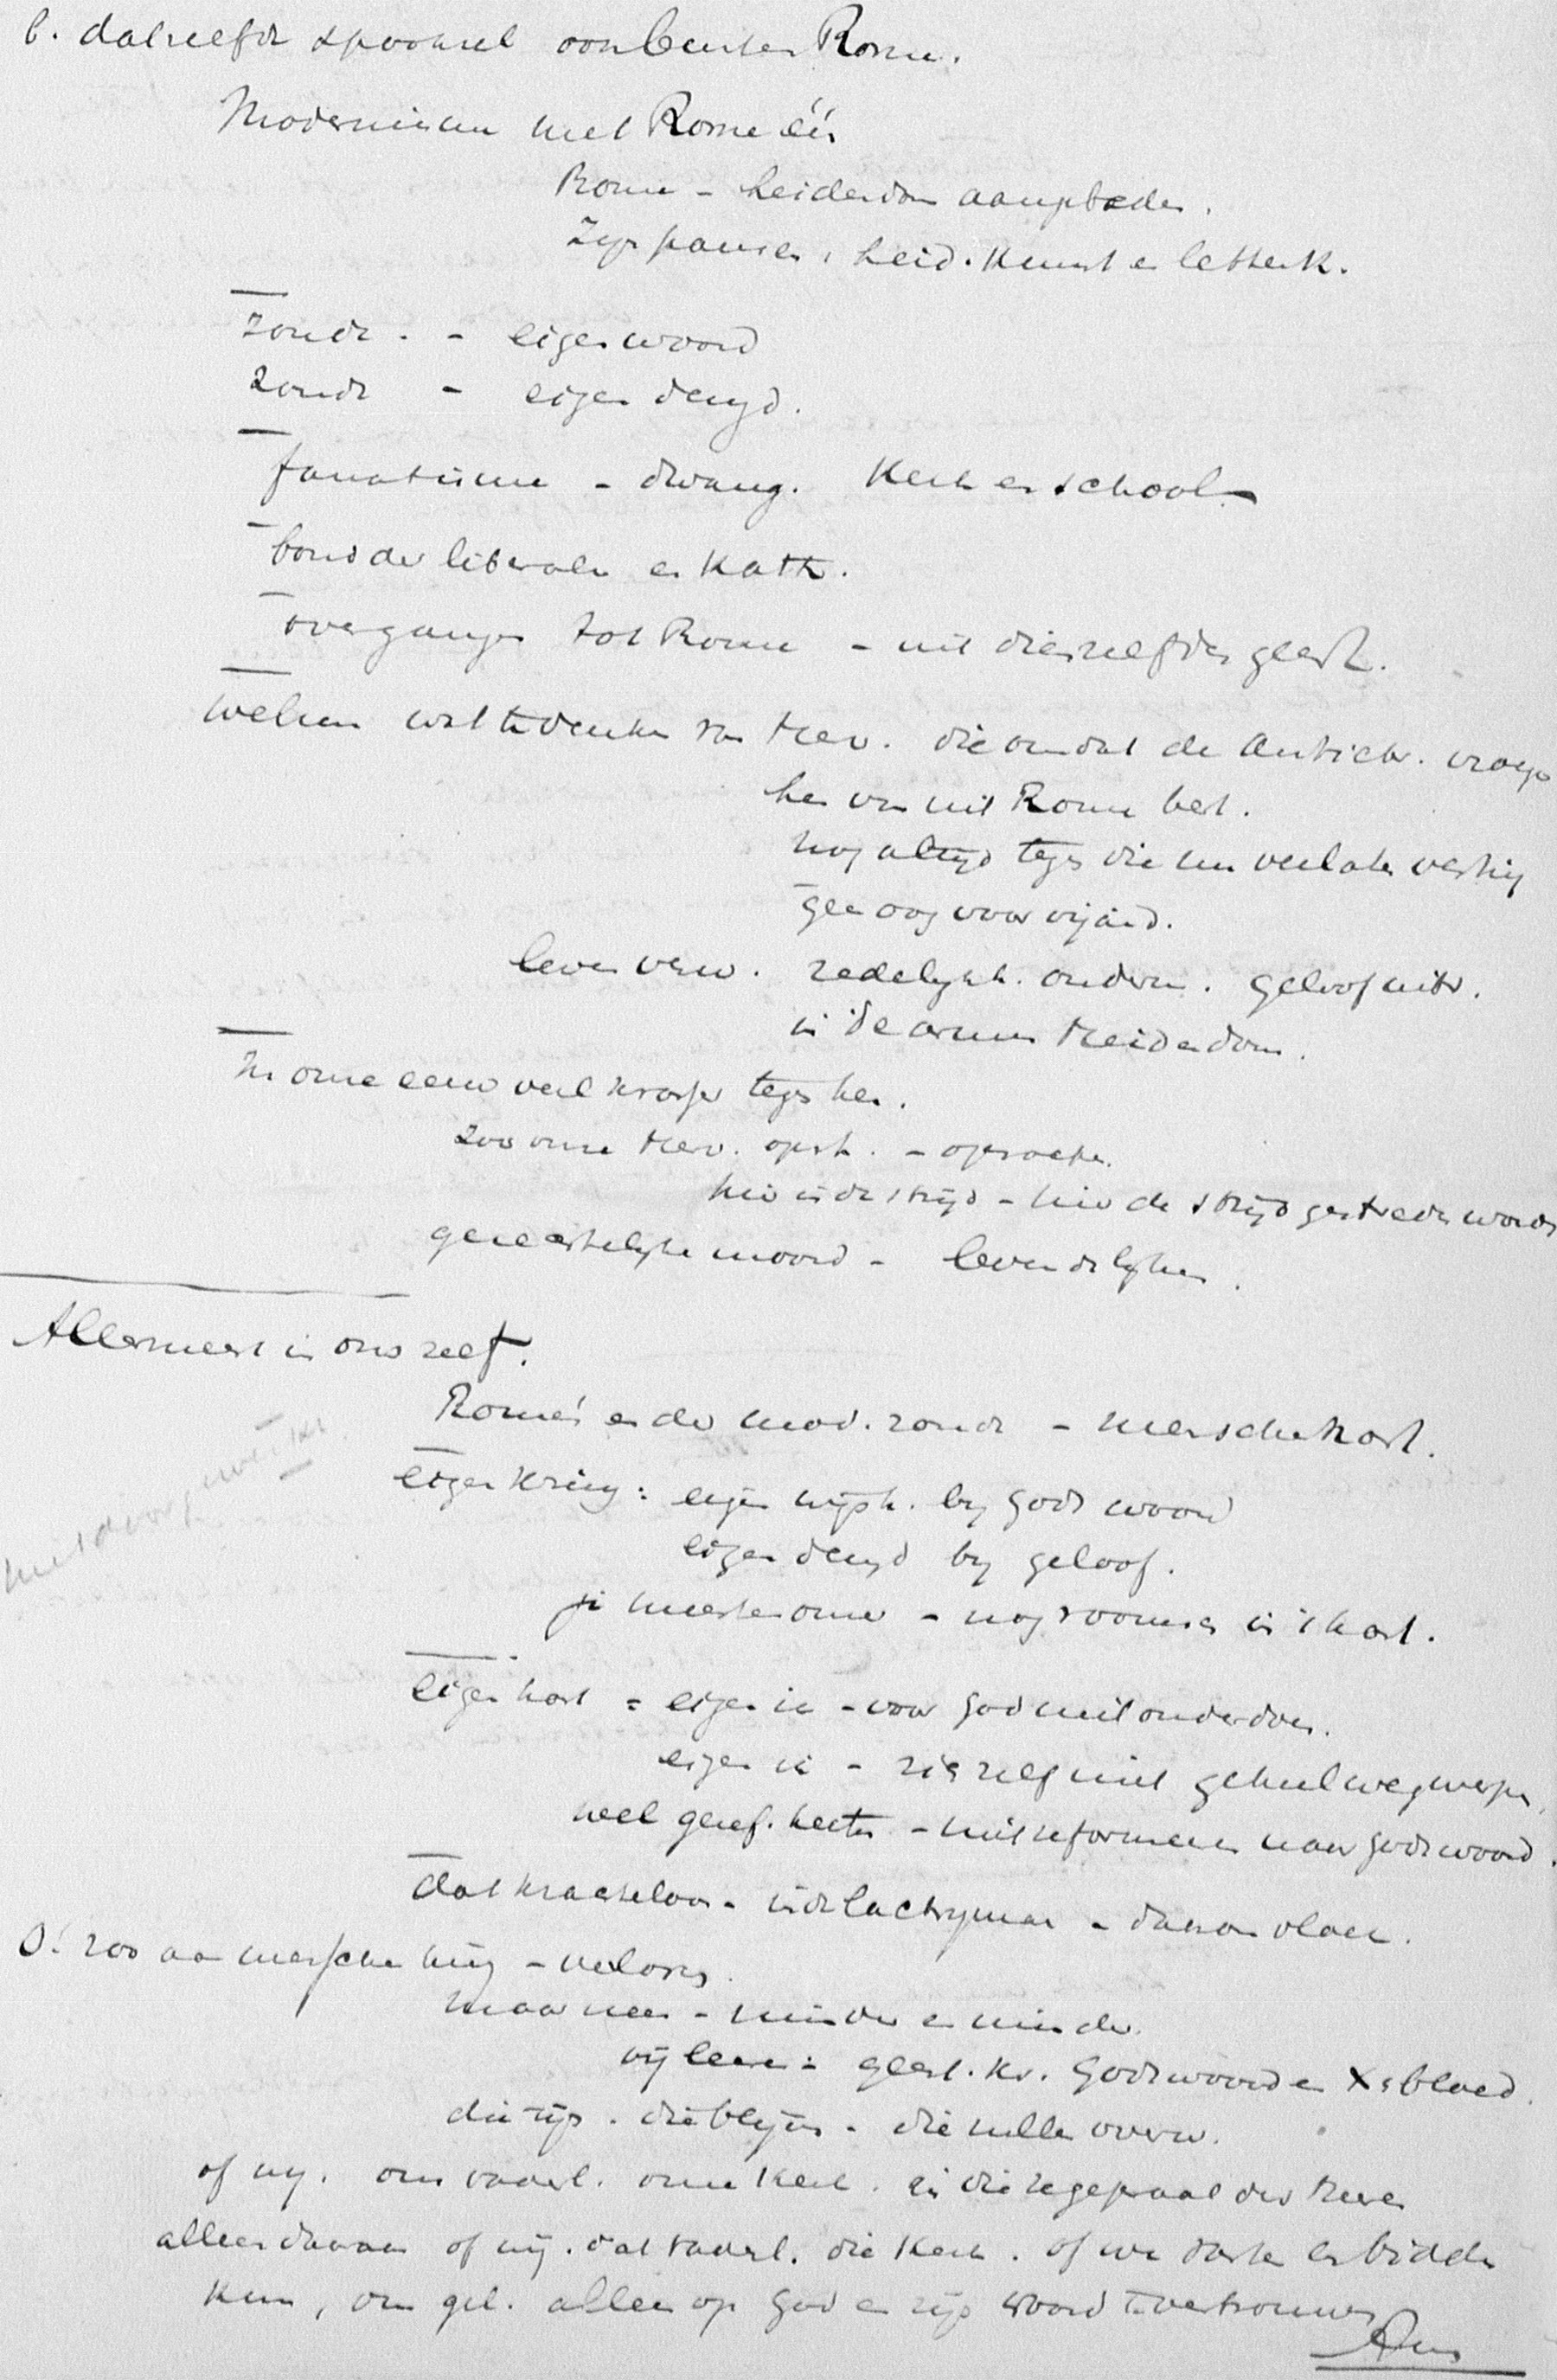 b. datzelfde spooksel ook buiten Rome.
Modernisme met Rome één
Rome - heidendom aangebeden.
Zijn pausen, heid. kunst en letterk.
zonde. - eigen woord
zonde - eigen deugd.
fanatisme - dwang. Kerk en school -
bond der liberalen en Kath.
overgangen tot Rome - uit dienzelfden geest.
Welnu wat te denken van Herv. die omdat de Antichr. vroeger
hen van uit Rome best.
nog altijd tegen die nu verlaten vesting
geen oog voor vijand.
leven verw. zedelijkh. onderm. geloof uitr.
in de armen Heidendom.
In onze eeuw veel krasser tegen hen.
zoo onze Herv. opst. - opraken.
hier is de strijd - hier de strijd gestreden worden
geestelijke moord - levende lijken.
Allermeest in ons zelf.
Rome's en der mod. zonde - menschenhart.
Eigen kring: eigen wijsh. bij Gods woord
eigen deugd bij geloof.
ja meesten onzer - nog roomsch in 't hart.
Eigen hart = eigen ik - voor God niet onderdoen.
eigen ik - zich zelf niet geheel wegwerpen.
wel geref. heeten - niet reformeeren naar Gods woord.
dat krachteloos - - daarom vloek.
O! zoo aan menschen hing - verloren.
maar neen - minder en minder.
wij leeren: geest. kr. Gods woord en Xs bloed.
die zijn. die blijven. die zullen overw.
of wij. ons vaderl. onze Kerk. in die zegepraal des Heeren
alleen daarvan of wij. dat vaderl. die Kerk. of we danken en bidden
kunn, om gel. alleen op God en zijn woord te vertrouwen
Amen